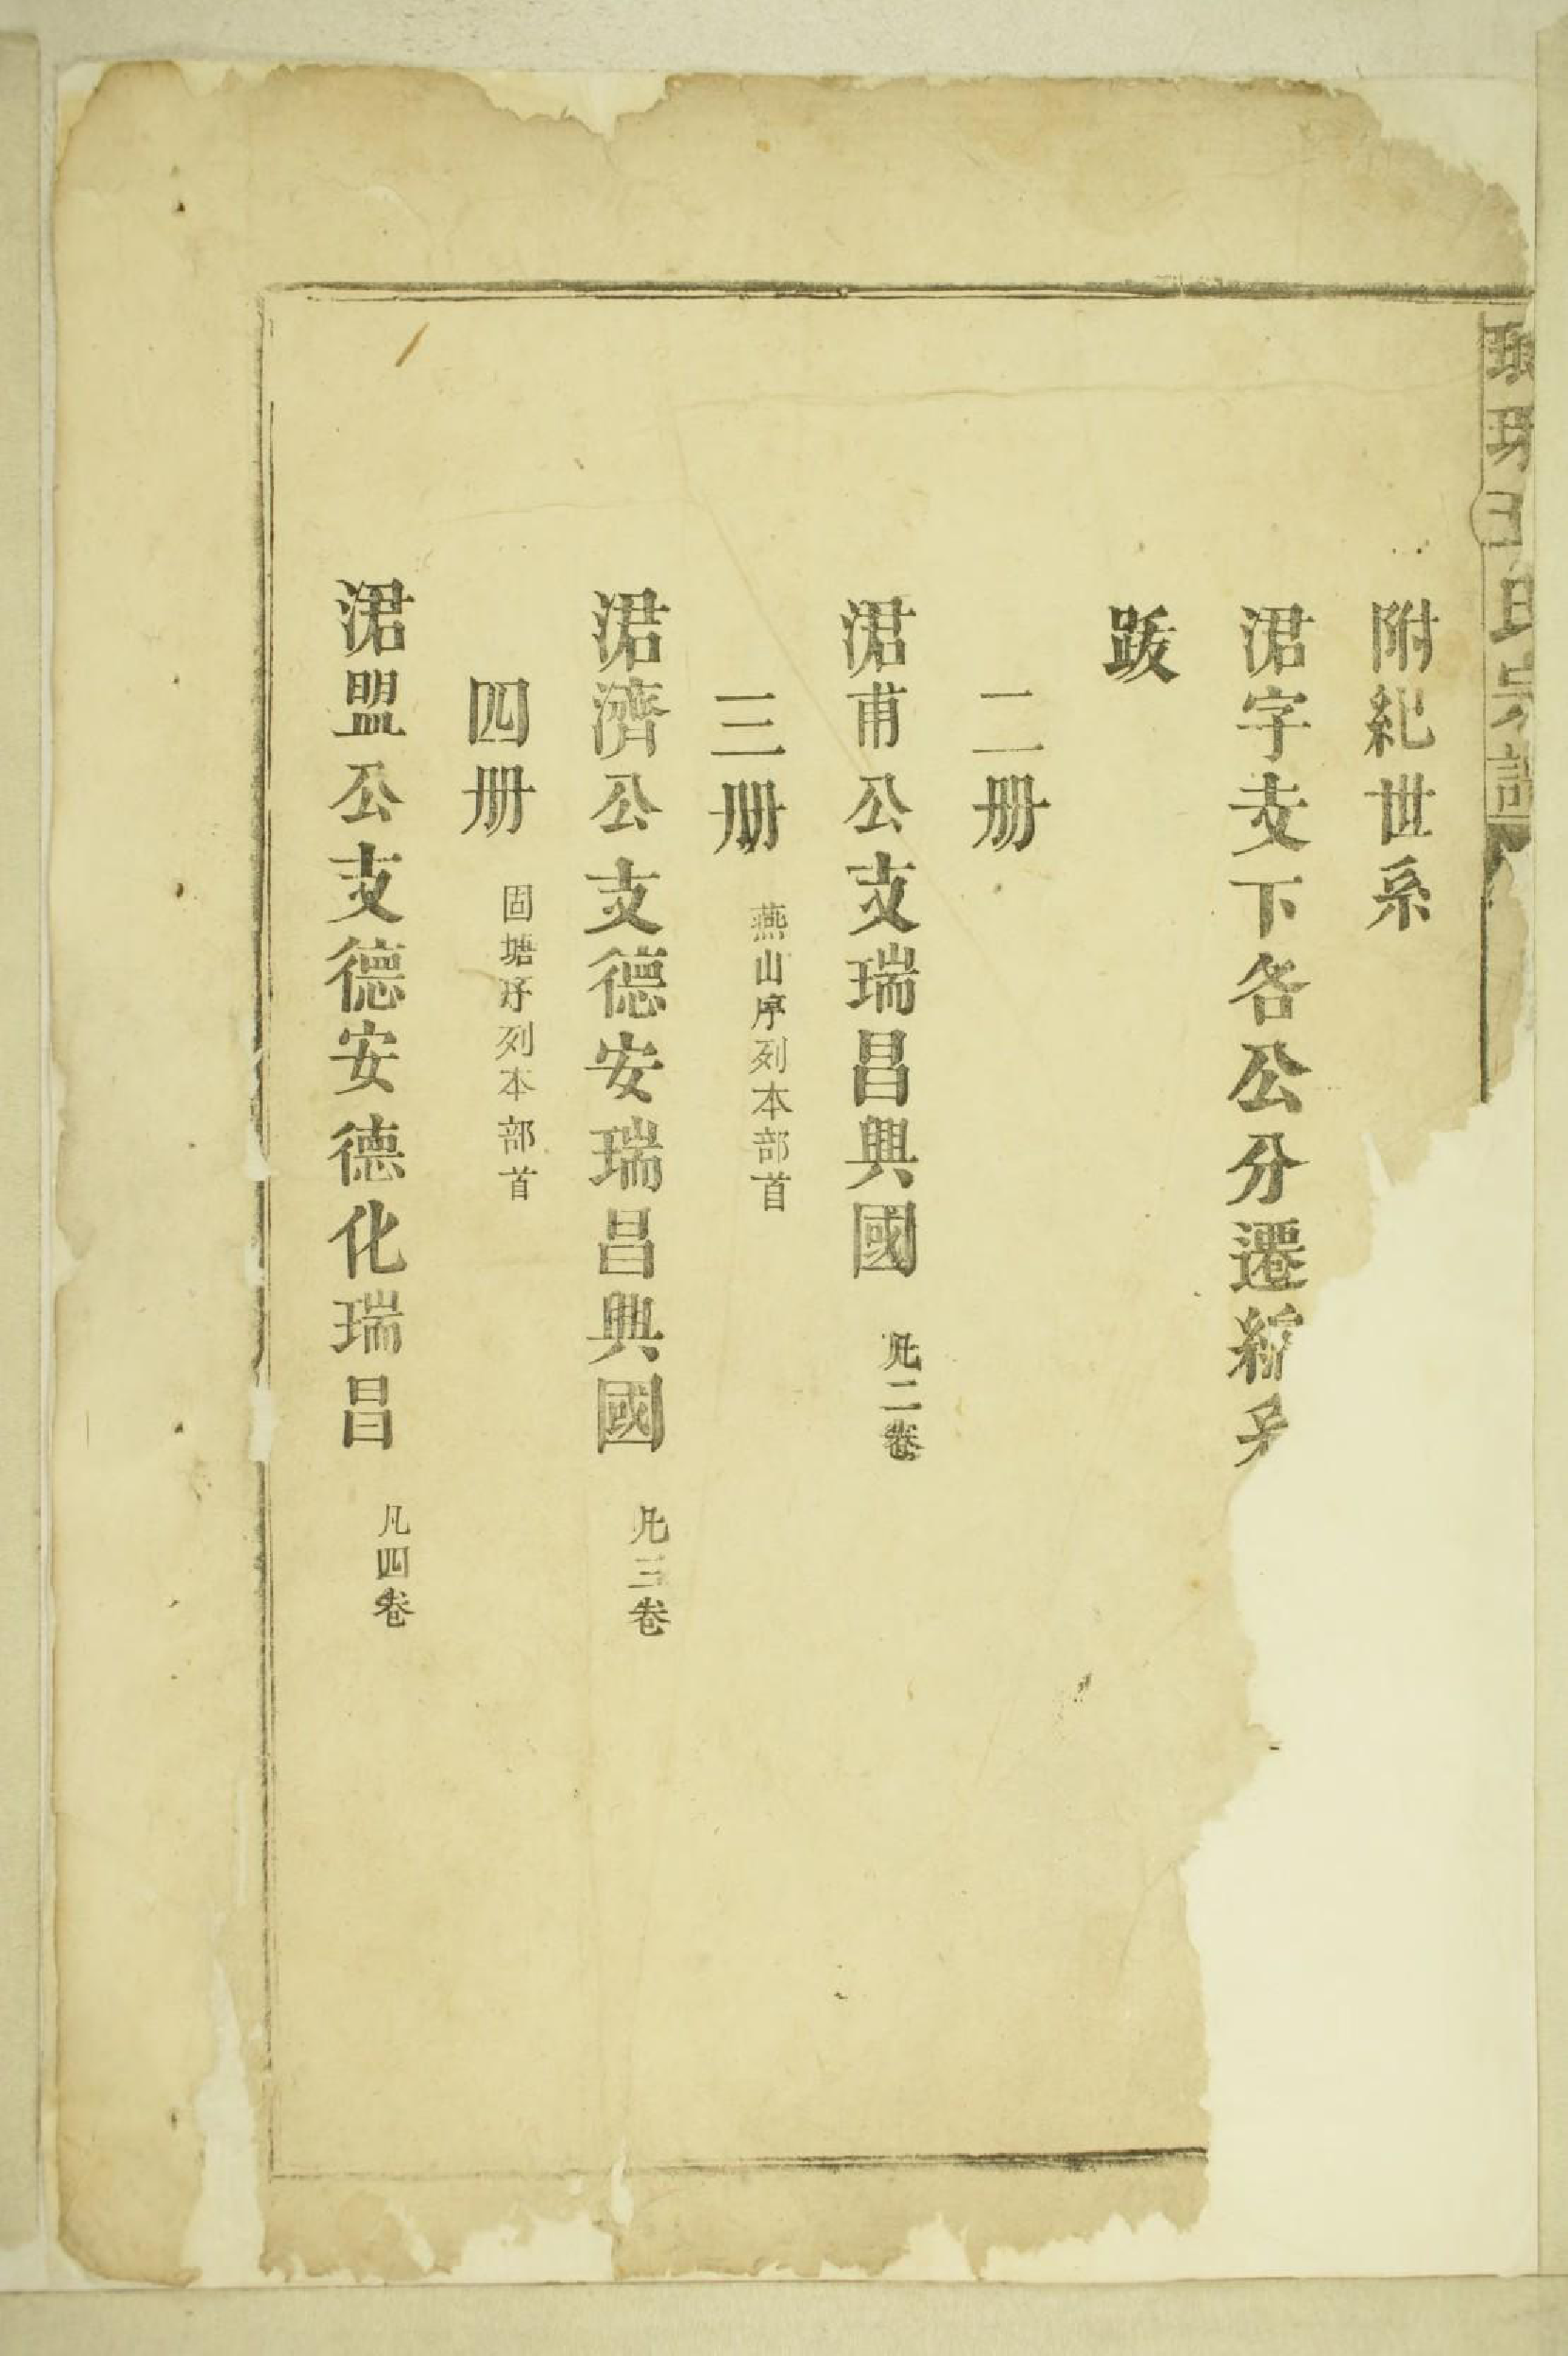 琊王氏宗譜
附紀世系
涒字支下各公分遷
跋
二册
涒甫公支瑞昌興國 凡二卷
三册 燕山序列本部首
涒濟公支德安瑞昌興國 凡三卷
四册 固塘序列本部首
涒盟公支德安德化瑞昌 凡四卷